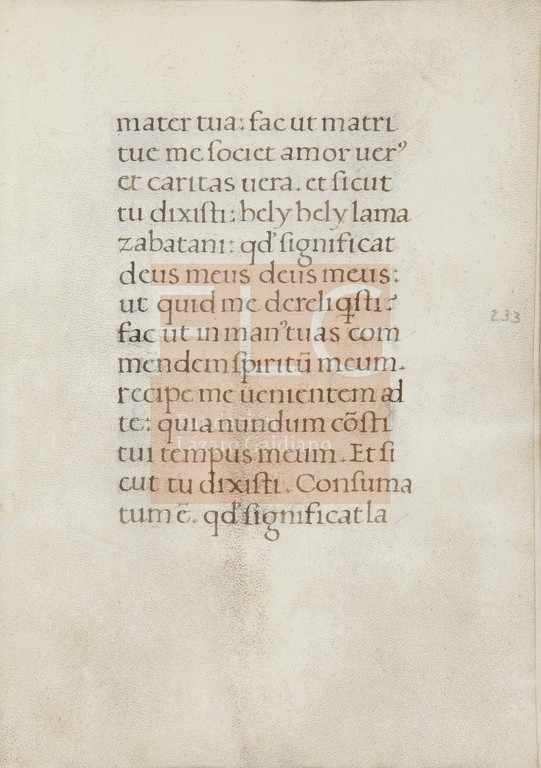 mater tua: fac ut matri
tue me ſociet amor uerꝰ
et caritas uera. et ſicut
tu dixiſti: hely hely lama
zabatani: qd' ſignificat
deus meus deus meus:
ut quid me dereliqſti?
fac ut in man'tuas com
mendem ſpiritū meum.
recipe me uenientem ad
te: quia nundum cōſti
tui tempus meum. Et ſi
cut tu dixiſti. Conſuma
tum ē. qd' ſignificat la
233
FLG
Fundación
Lázaro Galdiano